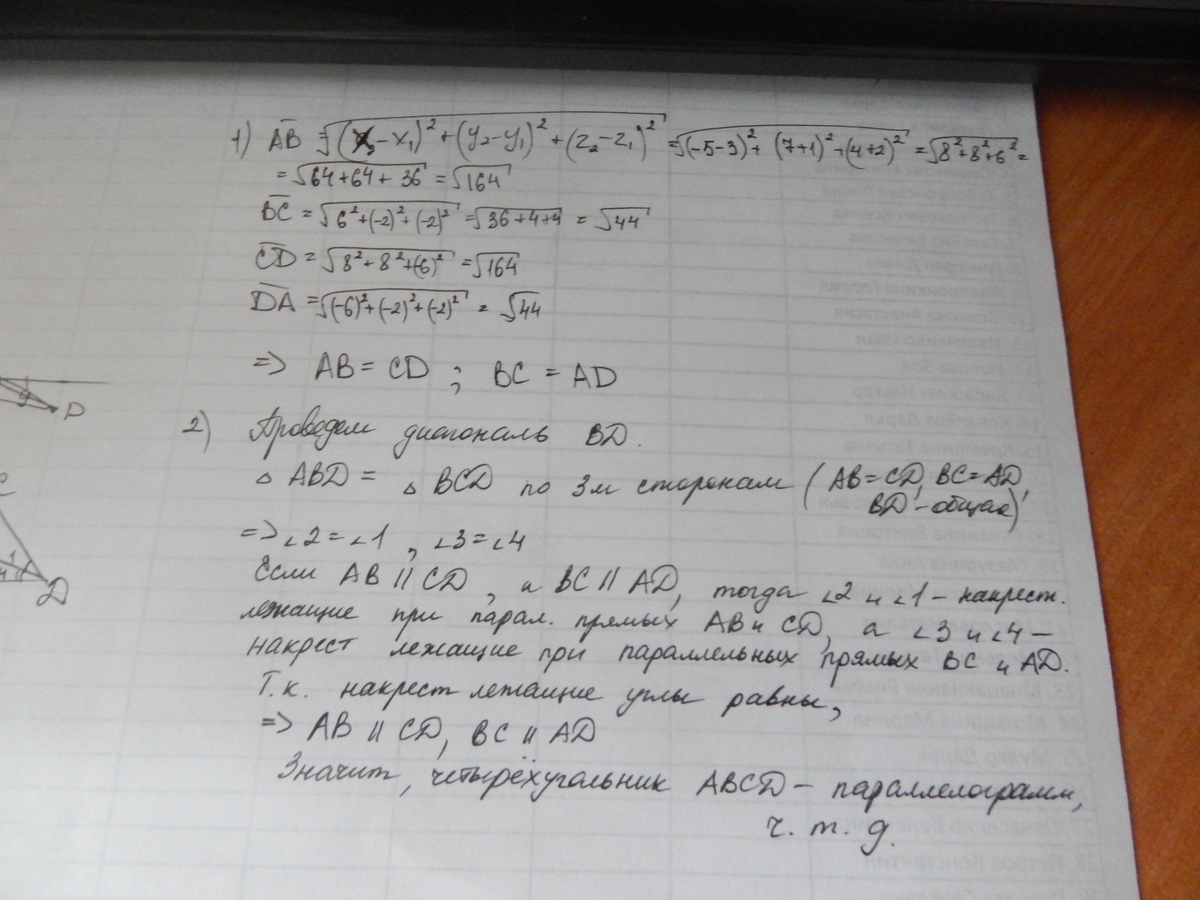 1) AB = √(x₂-x₁)²+(y₂-y₁)²+(z₂-z₁)² = √(-5-3)²+(7+1)²+(4+2)² = √8²+8²+6² =
= √64+64+36 = √164
BC = √6²+(-2)²+(-2)² = √36+4+4 = √44
CD = √8²+8²+(6)² = √164
DA = √(-6)²+(-2)²+(-2)² = √44
=> AB = CD ; BC = AD
D
2) Проведем диагональ BD.
△ ABD = △ BCD по 3м сторонам (AB=CD, BC=AD,
BD - общая)
=> ∠2=∠1, ∠3=∠4
Если AB || CD, а BC || AD, тогда ∠2 и ∠1 - накрест.
D
лежащие при парал. прямых AB и CD, а ∠3 и ∠4 -
накрест лежащие при параллельных прямых BC и AD.
Т.к. накрест лежащие углы равны,
=> AB || CD, BC || AD
Значит, четырёхугольник ABCD - параллелограмм,
ч. т. д.